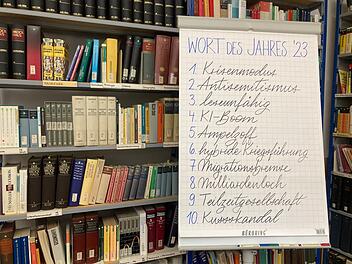 WORT DES JAHRES '23
1. Krisenmodus
2. Antisemitismus
3. leseunfähig
4. KI-Boom
5. Ampelzoff
6. hybride Kriegsführung
7. Migrationsbremse
8. Milliardenloch
9. Teilzeitgesellschaft
10. Kussskandal